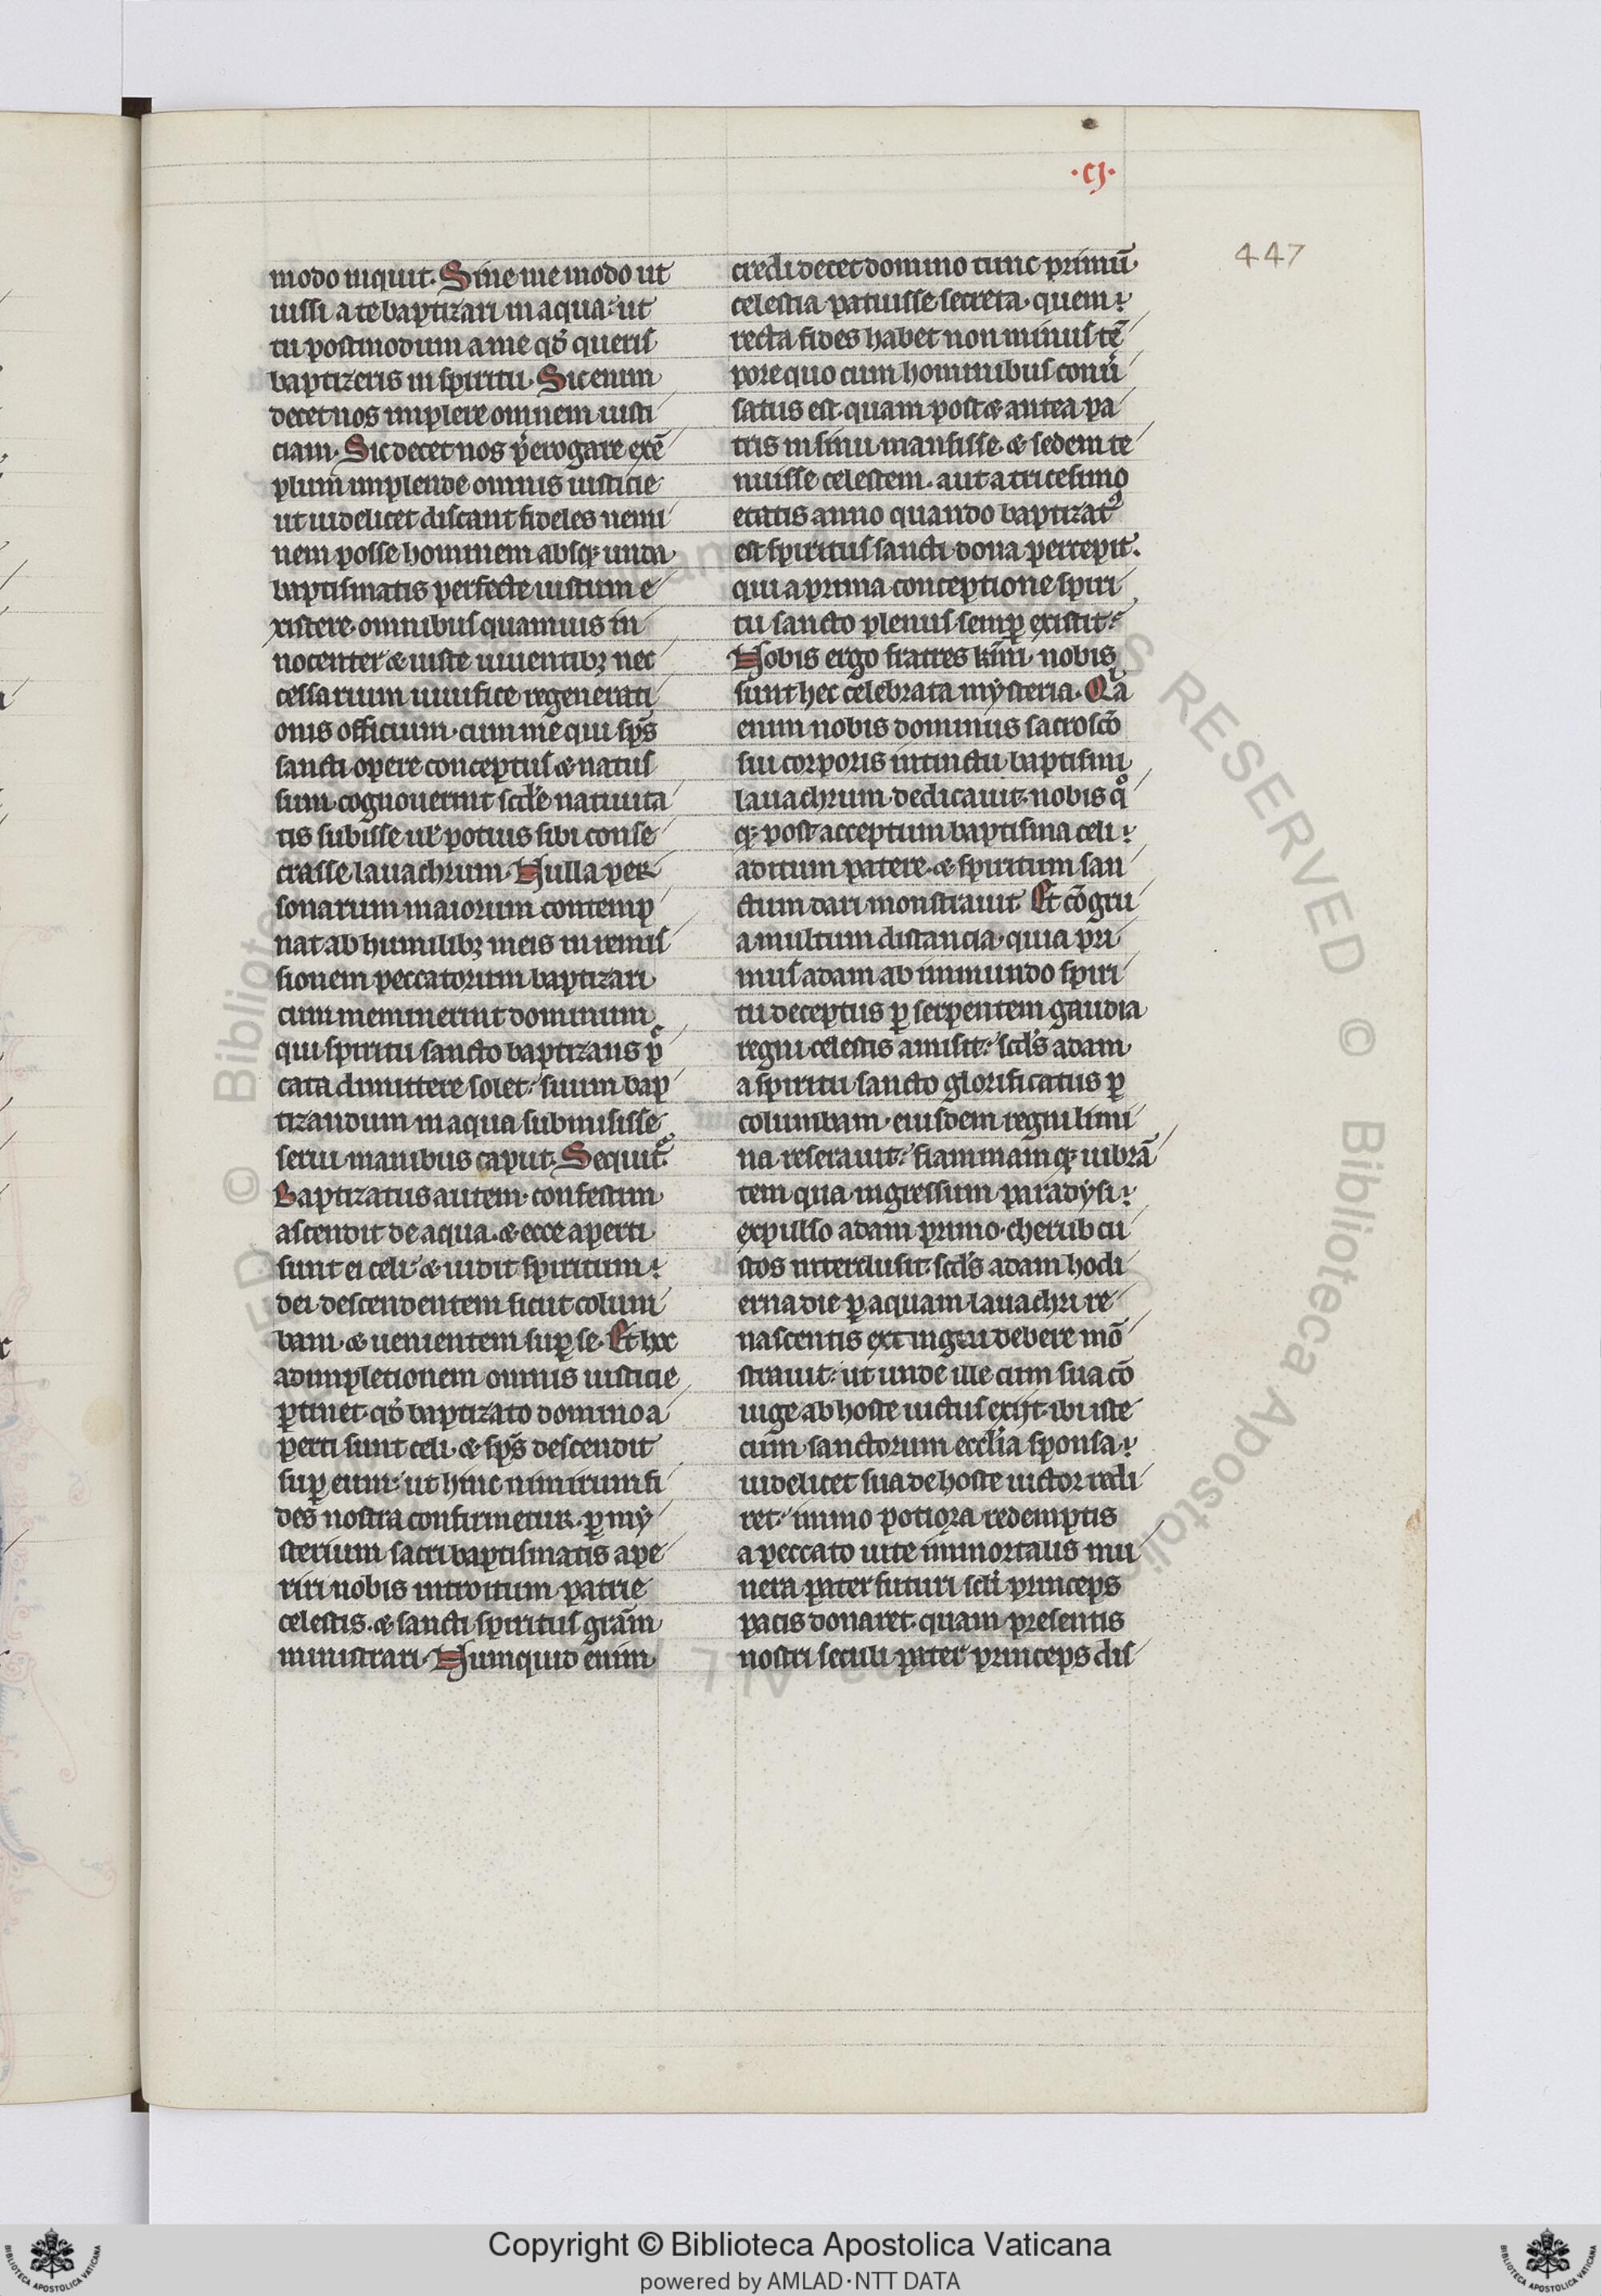 ·cj·
447
modo inquit. Sine me modo ut
iussi a te baptizari in aqua: ut
tu postmodum a me qd̄ queris
baptizeris in spiritu. Sic enim
decet nos implere omnem iusti
ciam. Sic decet nos p̄erogare exē
plum implende omnis iusticie
ut uidelicet discant fideles nemi
nem posse hominem absq; unda
baptismatis perfecte iustum e
xistere. omnibus quamuis in
nocenter & iuste uiuentibꝫ nec
cessarium uiuifice regenerati
onis officium. cum me qui sp̄s
sancti opere conceptus & natus
sum cognouerint scd̄e natiuita
tis subisse ul̄ potius sibi conse
crasse lauachrum. Nulla per
sonarum maiorum contemp
nat ab humilibꝫ meis in remis
sionem peccatorum baptizari
cum meminerint dominum
qui spiritu sancto baptizans p̄
cata dimittere solet: suum bap
tizandum in aqua submisisse
serui manibus caput. Sequit᷑.
Baptizatus autem. confestim
ascendit de aqua. & ecce aperti
sunt ei celi: & uidit spiritum:
dei descendentem sicut colum
bam. & uenientem suꝑ se. Et hec
adimpletionem omnis iusticie
ꝑtinet. qd̄ baptizato domino a
perti sunt celi. & sp̄s descendit
suꝑ eum: ut hinc nimirum fi
des nostra confirmetur. ꝑ my
sterium sacri baptismatis ape
riri nobis introitum patrie
celestis. & sancti spiritus gr̄am
ministrari. Numquid enim
credi decet domino tunc primū
celestia patuisse secreta. quem:
recta fides habet non minus tē
pore quo cum hominibus conu̾
satus est. quam post & antea pa
tris in sinu mansisse. & sedem te
nuisse celestem. aut a tricesimo
etatis anno quando baptizatꝰ
est spiritus sancti dona percepit.
qui a prima conceptione spiri
tu sancto plenus semꝑ existit:
Nobis ergo fratres kr̄mi nobis
sunt hec celebrata mysteria. Qͣ
enim nobis dominus sacroscō
sui corporis intinctu baptismi
lauachrum dedicauit. nobis qͦ
q; post acceptum baptisma celi:
aditum patere. & spiritum san
ctum dari monstrauit. Et cōgru
a multum distancia. quia pri
mus adam ab inmundo spiri
tu deceptus ꝑ serpentem gaudia
regni celestis amisit: scd̄s adam
a spiritu sancto glorificatus ꝑ
columbam. eiusdem regni limi
na reserauit: flammamq; uibrā
tem qua ingressum paradysi:
expulso adam primo. cherub cu
stos interclusit. scd̄s adam hodi
erna die ꝑ aquam lauachri re
nascentis extingui debere mō
strauit: ut unde ille cum sua cō
iuge ab hoste uictus exijt. ibi iste
cum sanctorum eccl̄ia sponsa:
uidelicet sua de hoste uictor redi
ret: immo potiora redemptis
a peccato uite inmortalis mu
nera pater futuri scl̄i princeps
pacis donaret. quam presentis
nostri seculi pater princeps dis
Copyright © Biblioteca Apostolica Vaticana
powered by AMLAD·NTT DATA